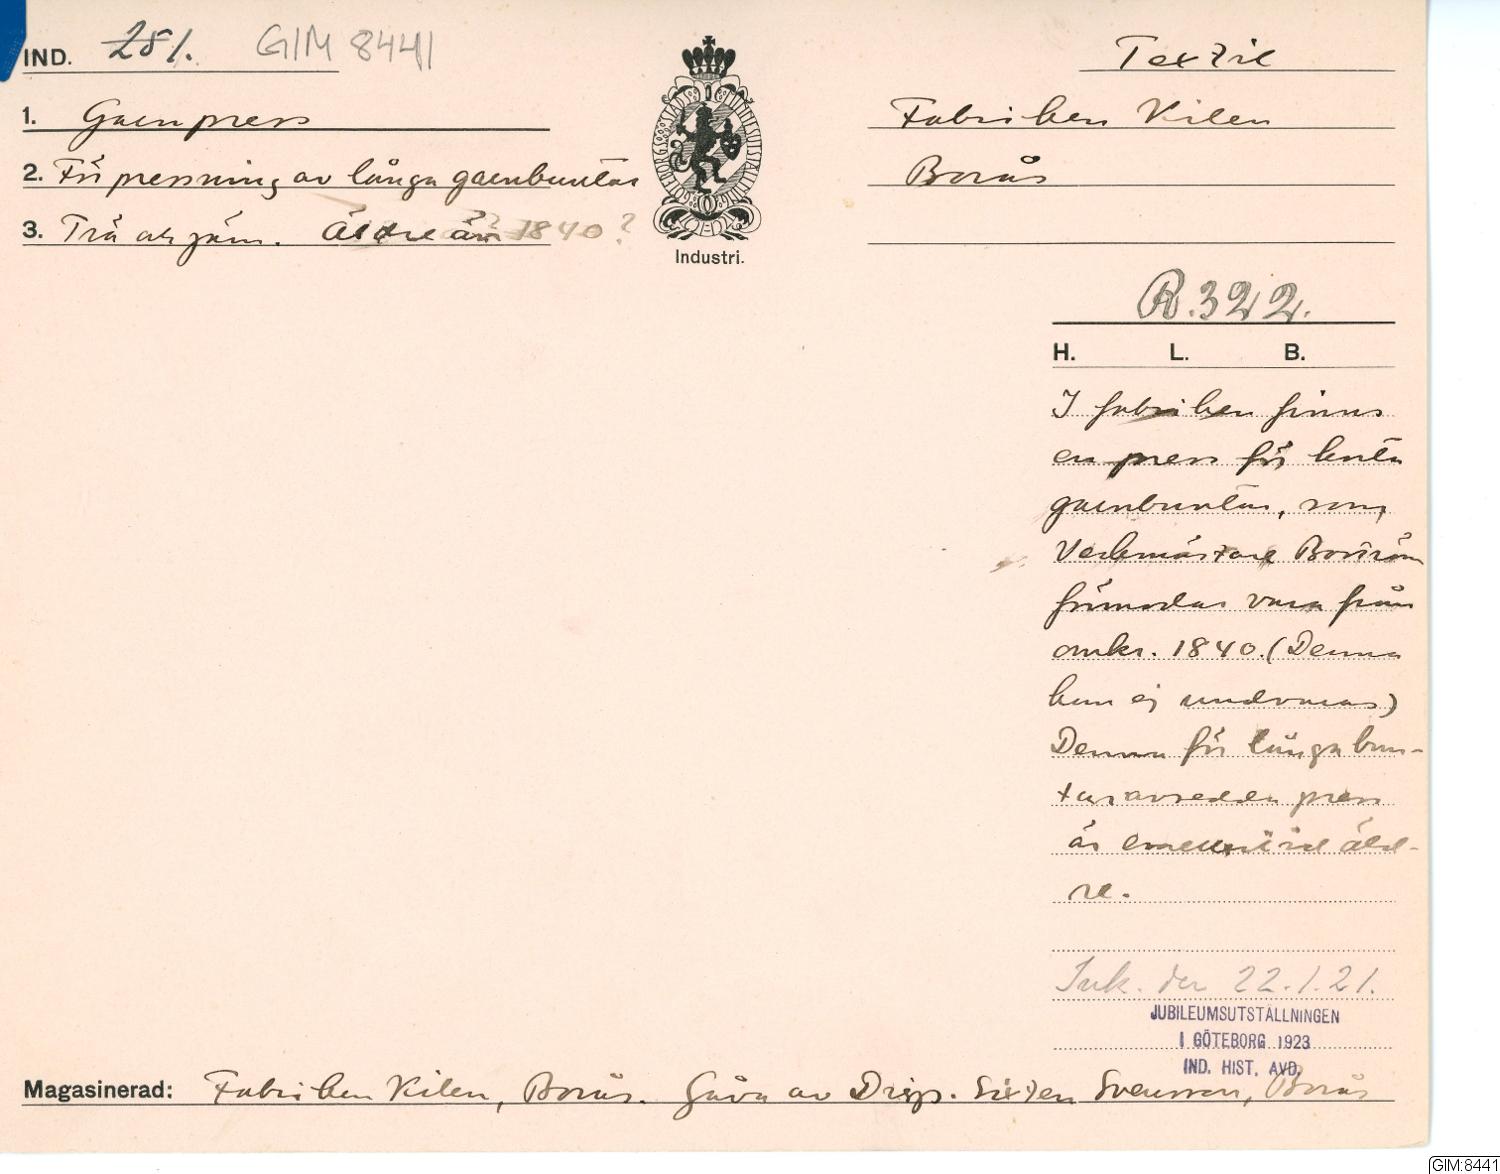 IND. 281. GIM 8441
Textil
1. Garnpress
Fabriken Kilen
2. För pressning av långa garnbuntar
Borås
3. Trä och järn. Äldre än 1840?
GÖTEBORGS STADS MINNESUTSTÄLLNING
Industri.
R.322.
H. L. B.
I fabriken finns
en press för korta
garnbuntar, som
Verkmästare Boström
förmodar vara från
omkr. 1840. (Denna
kan ej undvaras)
Denna för långa bun-
tar avsedda press
är emellertid äld-
re.
Ink. den 22.1.21.
JUBILEUMSUTSTÄLLNINGEN
I GÖTEBORG 1923
IND. HIST. AVD.
Magasinerad: Fabriken Kilen, Borås. Gåva av Disp. Sixten Svensson, Borås
GIM:8441